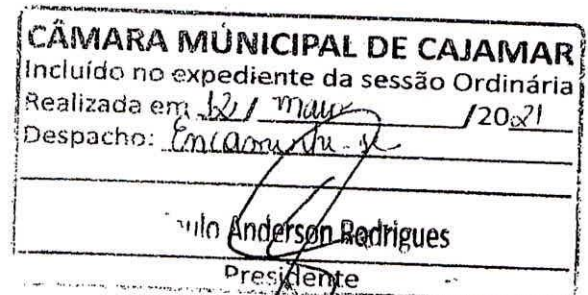 CÂMARA MÚNICIPAL DE CAJAMAR
Incluído no expediente da sessão Ordinária
Realizada em 12 / maio /2021
Despacho: Encaminhe-se
ulo Anderson Rodrigues
Presidente